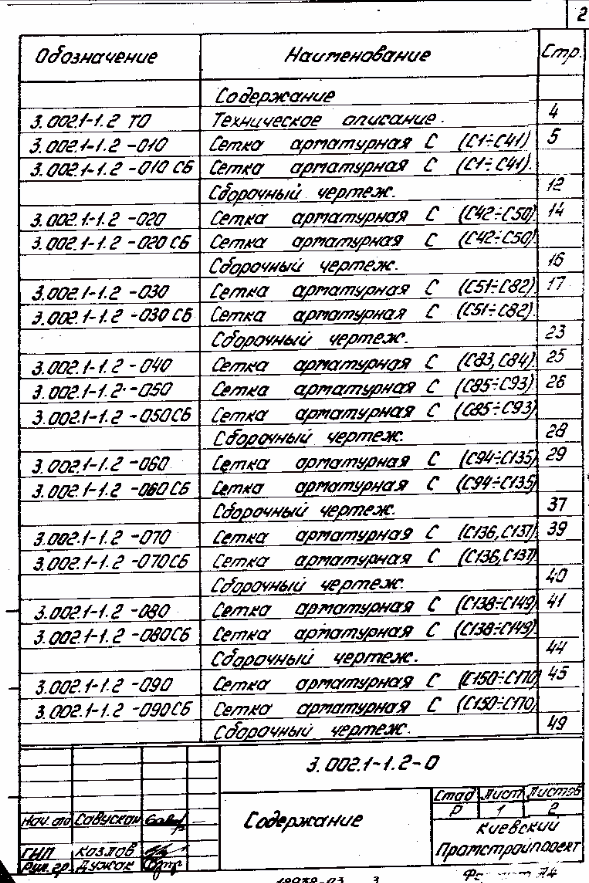 2
Обозначение Наименование Стр.
Содержание
3.002.1-1.2 ТО Техническое описание. 4
3.002.1-1.2 -010 Сетка арматурная С (С1÷С41) 5
3.002.1-1.2 -010 СБ Сетка арматурная С (С1÷С41).
Сборочный чертеж. 12
3.002.1-1.2 -020 Сетка арматурная С (С42÷С50) 14
3.002.1-1.2 -020 СБ Сетка арматурная С (С42÷С50).
Сборочный чертеж. 16
3.002.1-1.2 -030 Сетка арматурная С (С51÷С82) 17
3.002.1-1.2 -030 СБ Сетка арматурная С (С51÷С82).
Сборочный чертеж. 23
3.002.1-1.2 -040 Сетка арматурная С (С83, С84) 25
3.002.1-1.2 -050 Сетка арматурная С (С85÷С93) 26
3.002.1-1.2 -050СБ Сетка арматурная С (С85÷С93)
Сборочный чертеж. 28
3.002.1-1.2 -060 Сетка арматурная С (С94÷С135) 29
3.002.1-1.2 -060 СБ Сетка арматурная С (С94÷С135)
Сборочный чертеж. 37
3.002.1-1.2 -070 Сетка арматурная С (С136, С137) 39
3.002.1-1.2 -070СБ Сетка арматурная С (С136, С137)
Сборочный чертеж. 40
3.002.1-1.2 -080 Сетка арматурная С (С138÷С149) 41
3.002.1-1.2 -080СБ Сетка арматурная С (С138÷С149).
Сборочный чертеж. 44
3.002.1-1.2 -090 Сетка арматурная С (С150÷С170) 45
3.002.1-1.2 -090СБ Сетка арматурная С (С150÷С170)
Сборочный чертеж. 49
3.002.1-1.2-0
Стад Лист Листов
Р 1 2
Нач. отд
Содержание
Киевский
Промстройпроект
ГИП Козлов
Рук. гр. Дужак
18938-03 3
Формат А4